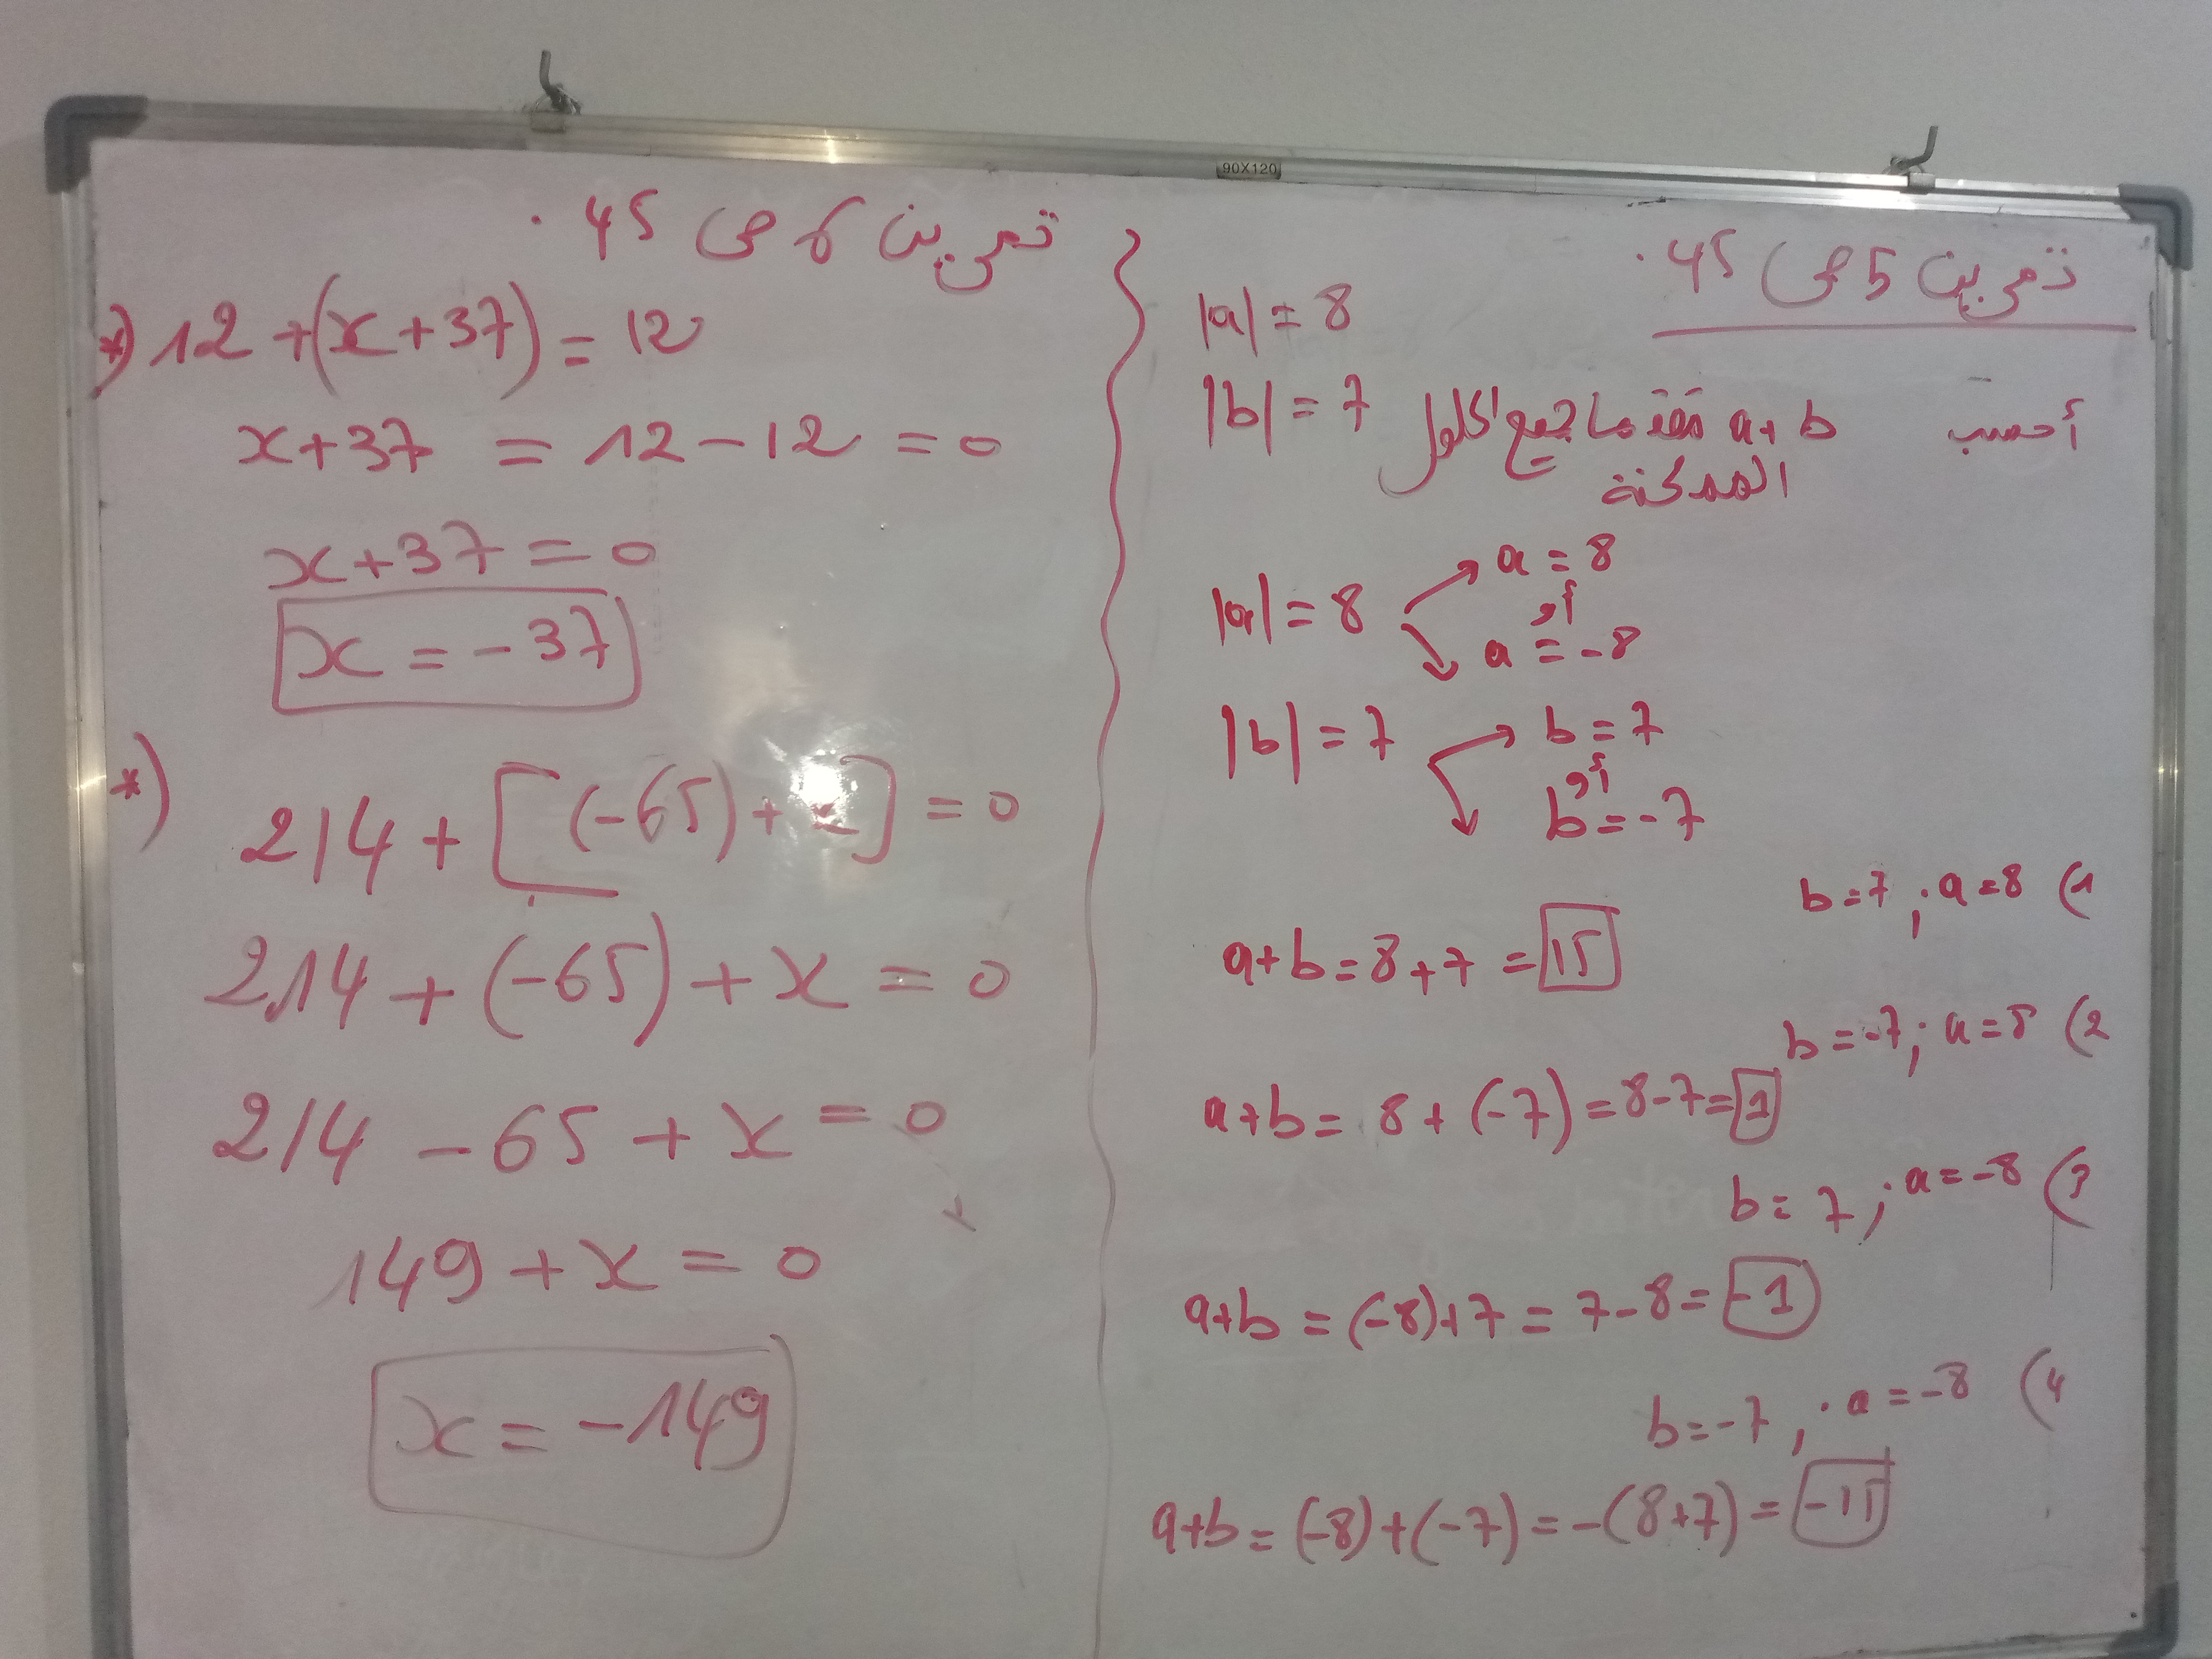 90X120
تمرين 5 ص 45.
|a| = 8
|b| = 7
أحسب a+b مقدما جميع الحلول
الممكنة
|a| = 8
a = 8
أو
a = -8
|b| = 7
b = 7
أو
b = -7
1) a = 8 ; b = 7
a+b = 8+7 = 15
2) a = 8 ; b = -7
a+b = 8+(-7) = 8-7 = 1
3) a = -8 ; b = 7
a+b = (-8)+7 = 7-8 = -1
4) a = -8 ; b = -7
a+b = (-8)+(-7) = -(8+7) = -15
تمرين 6 ص 45.
*) 12 + (x+37) = 12
x+37 = 12-12 = 0
x+37 = 0
x = -37
*)
214 + [(-65) + x] = 0
214 + (-65) + x = 0
214 - 65 + x = 0
149 + x = 0
x = -149